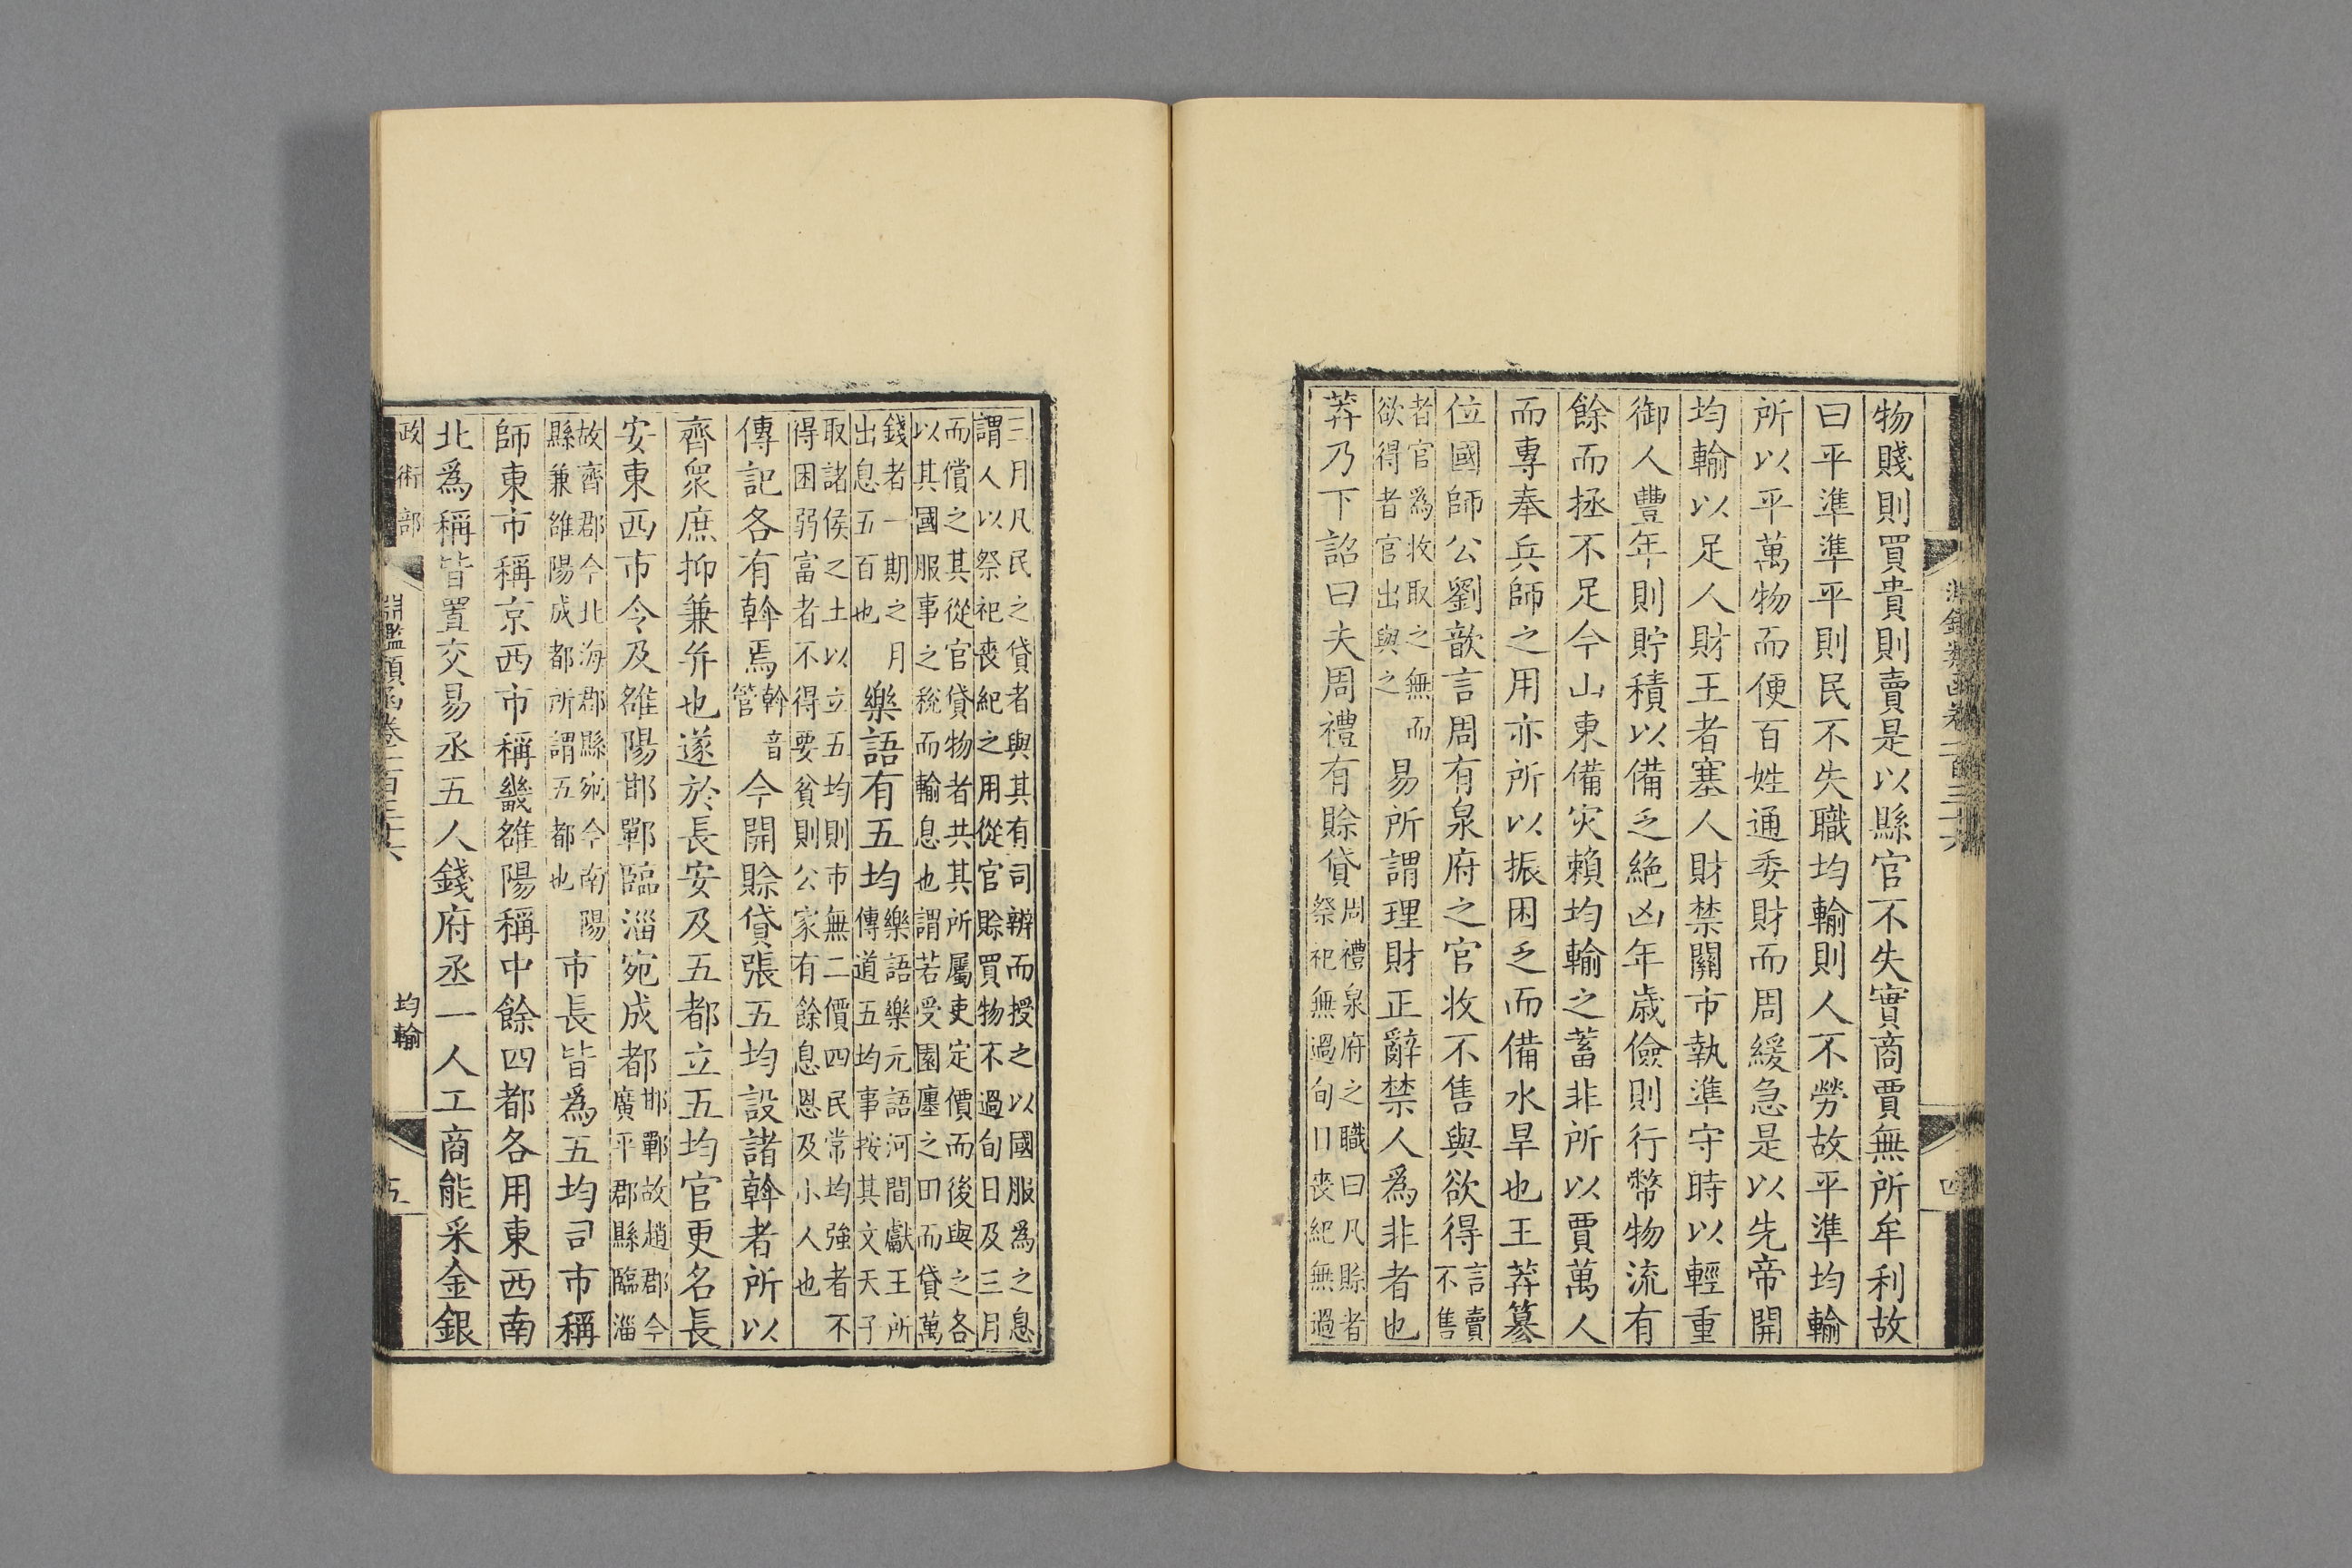 物賤則買貴則賣是以縣官不失實商賈無所牟利故
曰平準準平則民不失職均輸則人不勞故平準均輸
所以平萬物而便百姓通委財而周緩急是以先帝開
均輸以足人財王者塞人財禁關市執準守時以輕重
御人豐年則貯積以備乏絶凶年歲儉則行幣物流有
餘而拯不足今山東備灾賴均輸之蓄非所以賈萬人
而專奉兵師之用亦所以振困乏而備水旱也王莽篡
位國師公劉歆言周有泉府之官收不售與欲得言賣不售
者官爲收取之無而欲得者官出與之易所謂理財正辭禁人爲非者也
莽乃下詔曰夫周禮有賒貸周禮泉府之職曰凡賒者祭祀無過旬日喪紀無過
三月凡民之貸者與其有司辨而授之以國服爲之息
謂人以祭祀喪紀之用從官賒買物不過旬日及三月
而償之其從官貸物者共其所屬吏定價而後與之各
以其國服事之稅而輸息也謂若受園廛之田而貸萬
錢者一期之月出息五百也樂語有五均樂語樂元語河間獻王所傳道五均事按其文天子
取諸侯之土以立五均則市無二價四民常均強者不
得困弱富者不得要貧則公家有餘息恩及小人也
傳記各有斡焉斡音管今開賒貸張五均設諸斡者所以
齊眾庶抑兼并也遂於長安及五都立五均官更名長
安東西市令及雒陽邯鄲臨淄宛成都邯鄲故趙郡今廣平郡縣臨淄
故齊郡今北海郡縣宛今南陽縣兼雒陽成都所謂五都也市長皆爲五均司市稱
師東市稱京西市稱畿雒陽稱中餘四都各用東西南
北爲稱皆置交易丞五人錢府丞一人工商能采金銀
政術部
淵鑑類函卷一百三十六
均輸
五